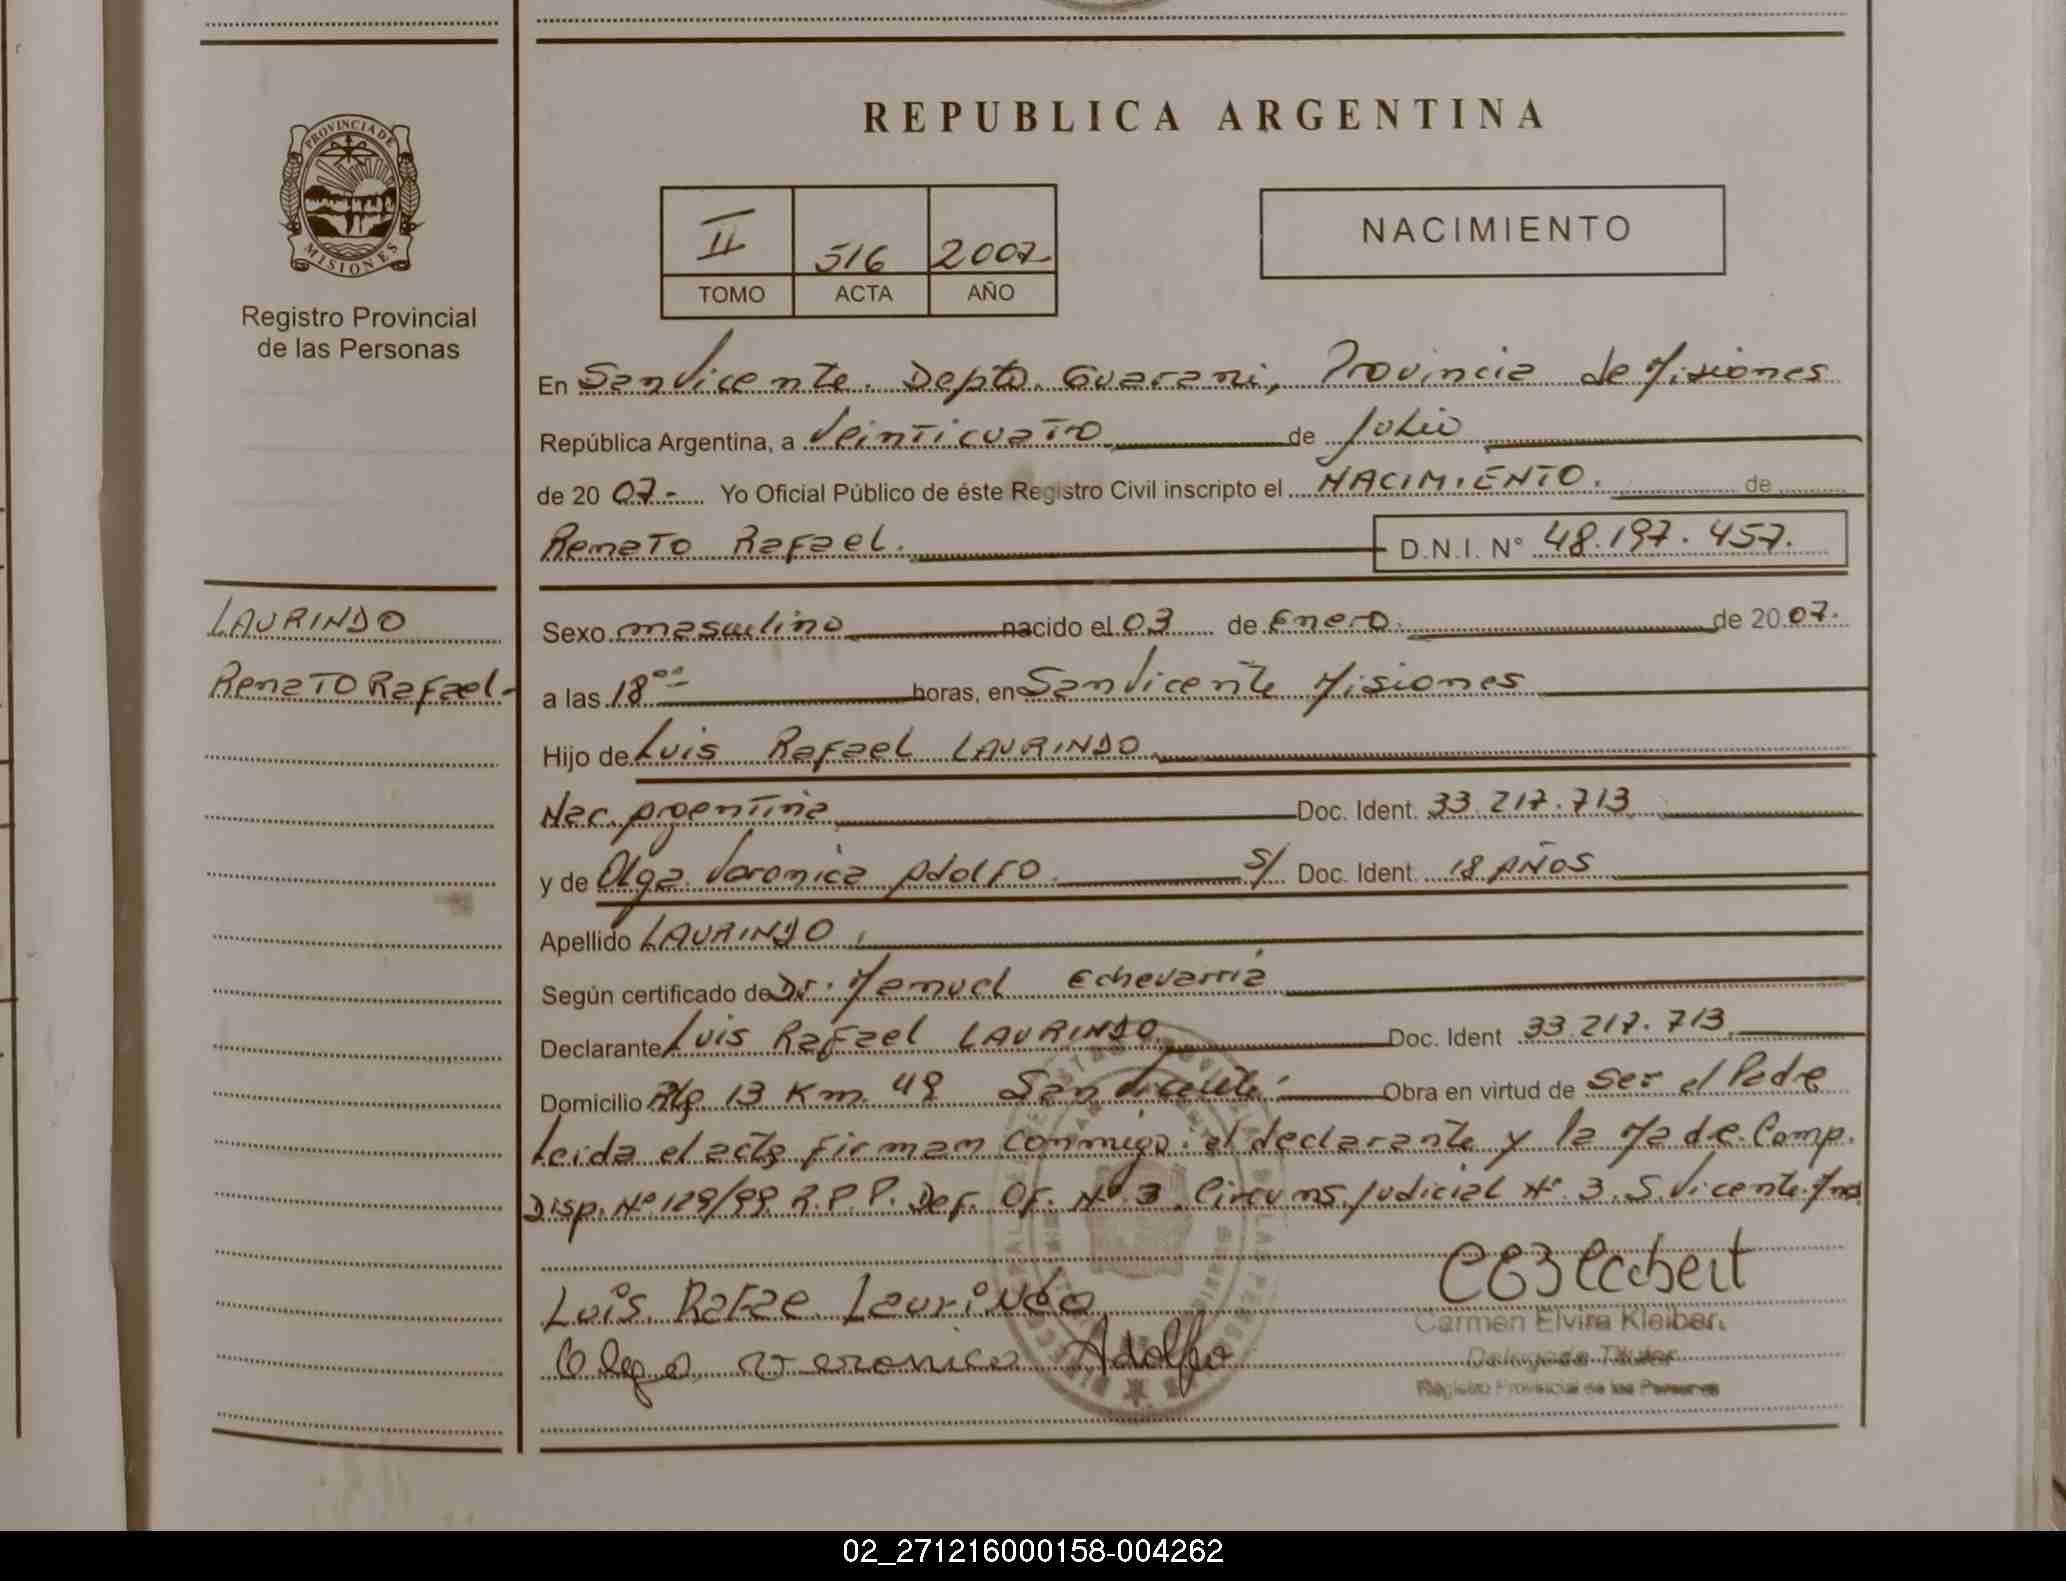 REPUBLICA ARGENTINA
PROVINCIA DE MISIONES
Registro Provincial
de las Personas
II 516 2007
TOMO ACTA AÑO
NACIMIENTO
En San Vicente. Depto. Guarani, Provincia de Misiones
República Argentina, a Veinticuatro de Julio
de 20 07.- Yo Oficial Público de éste Registro Civil inscripto el NACIMIENTO. de
Renato Rafael. D.N.I. N° 48.197.457.
LAURINDO
Renato Rafael.-
Sexo masculino nacido el 03 de Enero. de 20 07.
a las 18 00 horas, en San Vicente Misiones
Hijo de Luis Rafael LAURINDO
Nac. Argentina Doc. Ident. 33.217.713
y de Olga Veronica Adolfo S/ Doc. Ident. 18 AÑOS
Apellido LAURINDO
Según certificado de Dr. Manuel Echevarria
Declarante Luis Rafael LAURINDO Doc. Ident 33.217.713
Domicilio 13 Km. 49 San Vicente. Obra en virtud de ser el Padre
Leida el acta firman conmigo: el declarante y la Madre. Comp.
Disp. N° 129/99 R.P.P. Def. Of. N° 3 Circuns. Judicial N° 3. S. Vicente. Mnes.
Luis Rafae Laurindo
Olga veronica Adolfo
Carmen Elvira Kleiber
Delegada Titular
Registro Provincial de las Personas
02_271216000158-004262